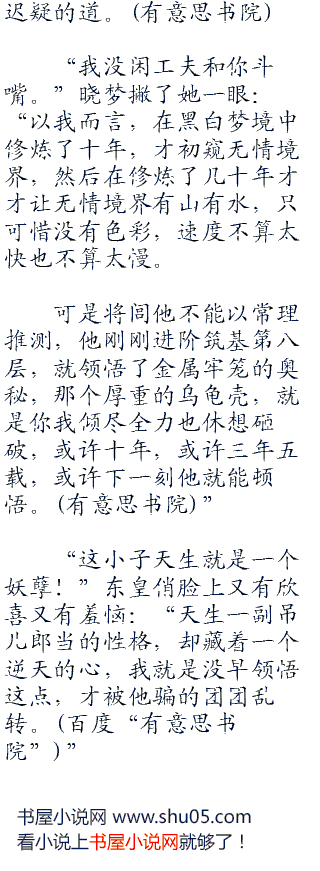 迟疑的道。(有意思书院)
“我没闲工夫和你斗
嘴。”晓梦撇了她一眼：
“以我而言，在黑白梦境中
修炼了十年，才初窥无情境
界，然后在修炼了几十年才
才让无情境界有山有水，只
可惜没有色彩，速度不算太
快也不算太漫。
可是将闾他不能以常理
推测，他刚刚进阶筑基第八
层，就领悟了金属牢笼的奥
秘，那个厚重的乌龟壳，就
是你我倾尽全力也休想砸
破，或许十年，或许三年五
载，或许下一刻他就能顿
悟。(有意思书院)”
“这小子天生就是一个
妖孽！”东皇俏脸上又有欣
喜又有羞恼：“天生一副吊
儿郎当的性格，却藏着一个
逆天的心，我就是没早领悟
这点，才被他骗的团团乱
转。(百度“有意思书
院”)”
书屋小说网 www.shu05.com
看小说上书屋小说网就够了！